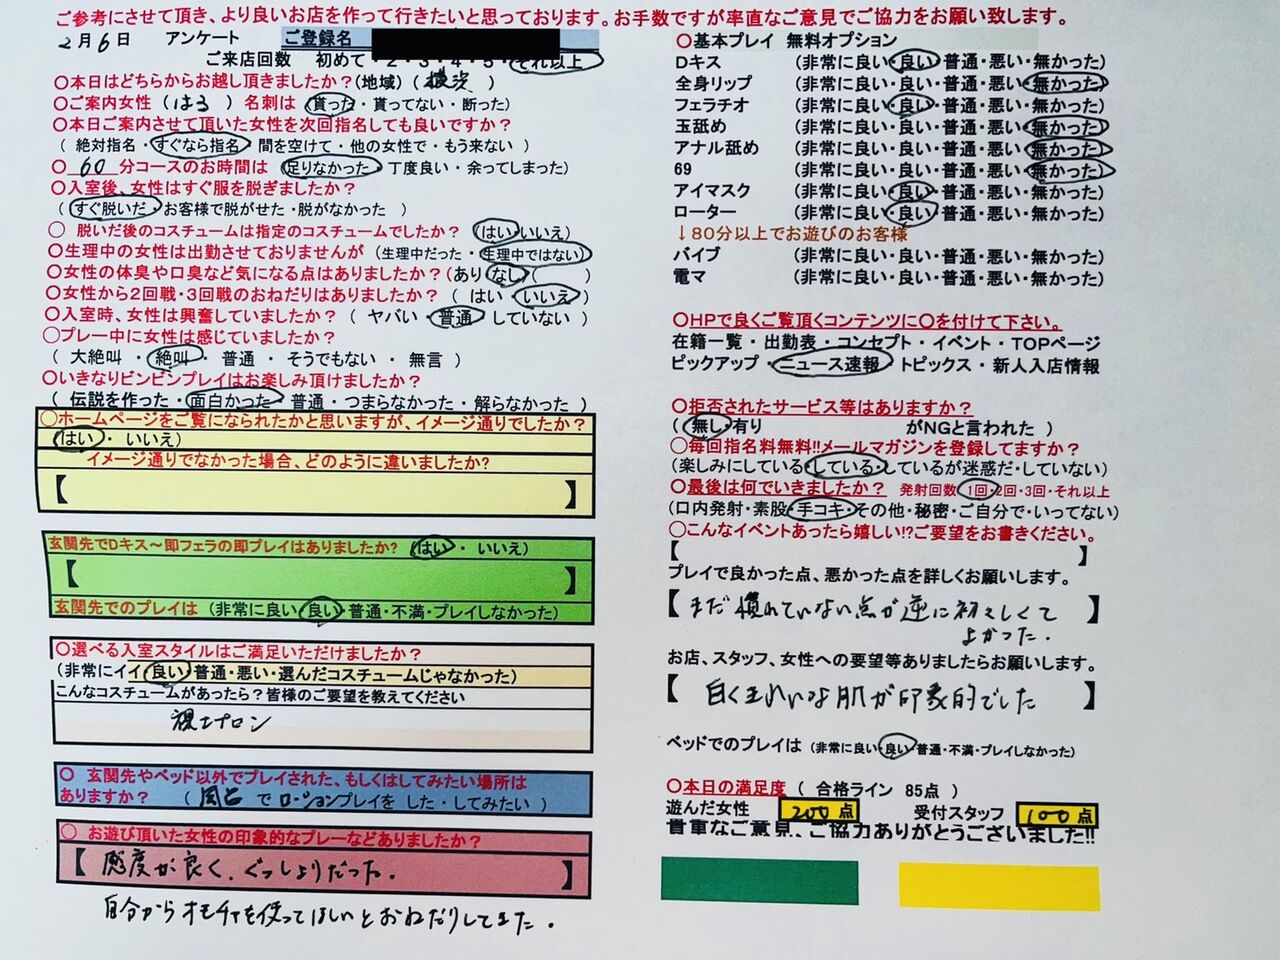 ご参考にさせて頂き、より良いお店を作って行きたいと思っております。お手数ですが率直なご意見でご協力をお願い致します。
2月6日 アンケート ご登録名
ご来店回数 初めて・2・3・4・5・それ以上
〇本日はどちらからお越し頂きましたか?(地域)( )
〇ご案内女性(はる)名刺は(貰った・貰ってない・断った)
〇本日ご案内させて頂いた女性を次回指名しても良いですか?
( 絶対指名・すぐなら指名 間を空けて・他の女性で・もう来ない )
〇 60 分コースのお時間は(足りなかった・丁度良い・余ってしまった)
〇入室後、女性はすぐ服を脱ぎましたか?
( すぐ脱いだ・お客様で脱がせた・脱がなかった )
〇 脱いだ後のコスチュームは指定のコスチュームでしたか?(はい・いいえ)
〇生理中の女性は出勤させておりませんが(生理中だった・生理中ではない)
〇女性の体臭や口臭など気になる点はありましたか?(あり・なし)( )
〇女性から2回戦・3回戦のおねだりはありましたか?( はい・いいえ )
〇入室時、女性は興奮していましたか?( ヤバい・普通・していない )
〇プレー中に女性は感じていましたか?
( 大絶叫 ・ 絶叫 ・ 普通 ・ そうでもない ・ 無言 )
〇いきなりビンビンプレイはお楽しみ頂けましたか?
( 伝説を作った・面白かった・普通・つまらなかった・解らなかった )
〇ホームページをご覧になられたかと思いますが、イメージ通りでしたか?
(はい ・ いいえ)
イメージ通りでなかった場合、どのように違いましたか?
【 】
玄関先でDキス～即フェラの即プレイはありましたか?(はい ・ いいえ)
【 】
玄関先でのプレイは(非常に良い・良い・普通・不満・プレイしなかった)
〇選べる入室スタイルはご満足いただけましたか?
(非常にイイ・良い・普通・悪い・選んだコスチュームじゃなかった)
こんなコスチュームがあったら?皆様のご要望を教えてください
裸エプロン
〇 玄関先やベッド以外でプレイされた、もしくはしてみたい場所は
ありますか? ( 風呂 で ローションプレイを した・してみたい )
〇 お遊び頂いた女性の印象的なプレーなどありましたか?
【 感度が良く、ぐっしょりだった。 】
自分からオモチャを使ってほしいとおねだりしてきた。
〇基本プレイ 無料オプション
Dキス (非常に良い・良い・普通・悪い・無かった)
全身リップ (非常に良い・良い・普通・悪い・無かった)
フェラチオ (非常に良い・良い・普通・悪い・無かった)
玉舐め (非常に良い・良い・普通・悪い・無かった)
アナル舐め (非常に良い・良い・普通・悪い・無かった)
69 (非常に良い・良い・普通・悪い・無かった)
アイマスク (非常に良い・良い・普通・悪い・無かった)
ローター (非常に良い・良い・普通・悪い・無かった)
↓80分以上でお遊びのお客様
バイブ (非常に良い・良い・普通・悪い・無かった)
電マ (非常に良い・良い・普通・悪い・無かった)
〇HPで良くご覧頂くコンテンツに〇を付けて下さい。
在籍一覧・出勤表・コンセプト・イベント・TOPページ
ピックアップ・ニュース速報・トピックス・新人入店情報
〇拒否されたサービス等はありますか?
(無し・有り がNGと言われた )
〇毎回指名料無料!!メールマガジンを登録してますか?
(楽しみにしている・している・しているが迷惑だ・していない)
〇最後は何でいきましたか? 発射回数 1回・2回・3回・それ以上
(口内発射・素股・手コキ・その他・秘密・ご自分で・いってない)
〇こんなイベントあったら嬉しい!?ご要望をお書きください。
【 】
プレイで良かった点、悪かった点を詳しくお願いします。
【 まだ慣れていない点が逆に初々しくて 】
よかった。
お店、スタッフ、女性への要望等ありましたらお願いします。
【 白くきれいな肌が印象的でした 】
ベッドでのプレイは (非常に良い・良い・普通・不満・プレイしなかった)
〇本日の満足度 ( 合格ライン 85点 )
遊んだ女性 200点 受付スタッフ 100点
貴重なご意見、ご協力ありがとうございました!!